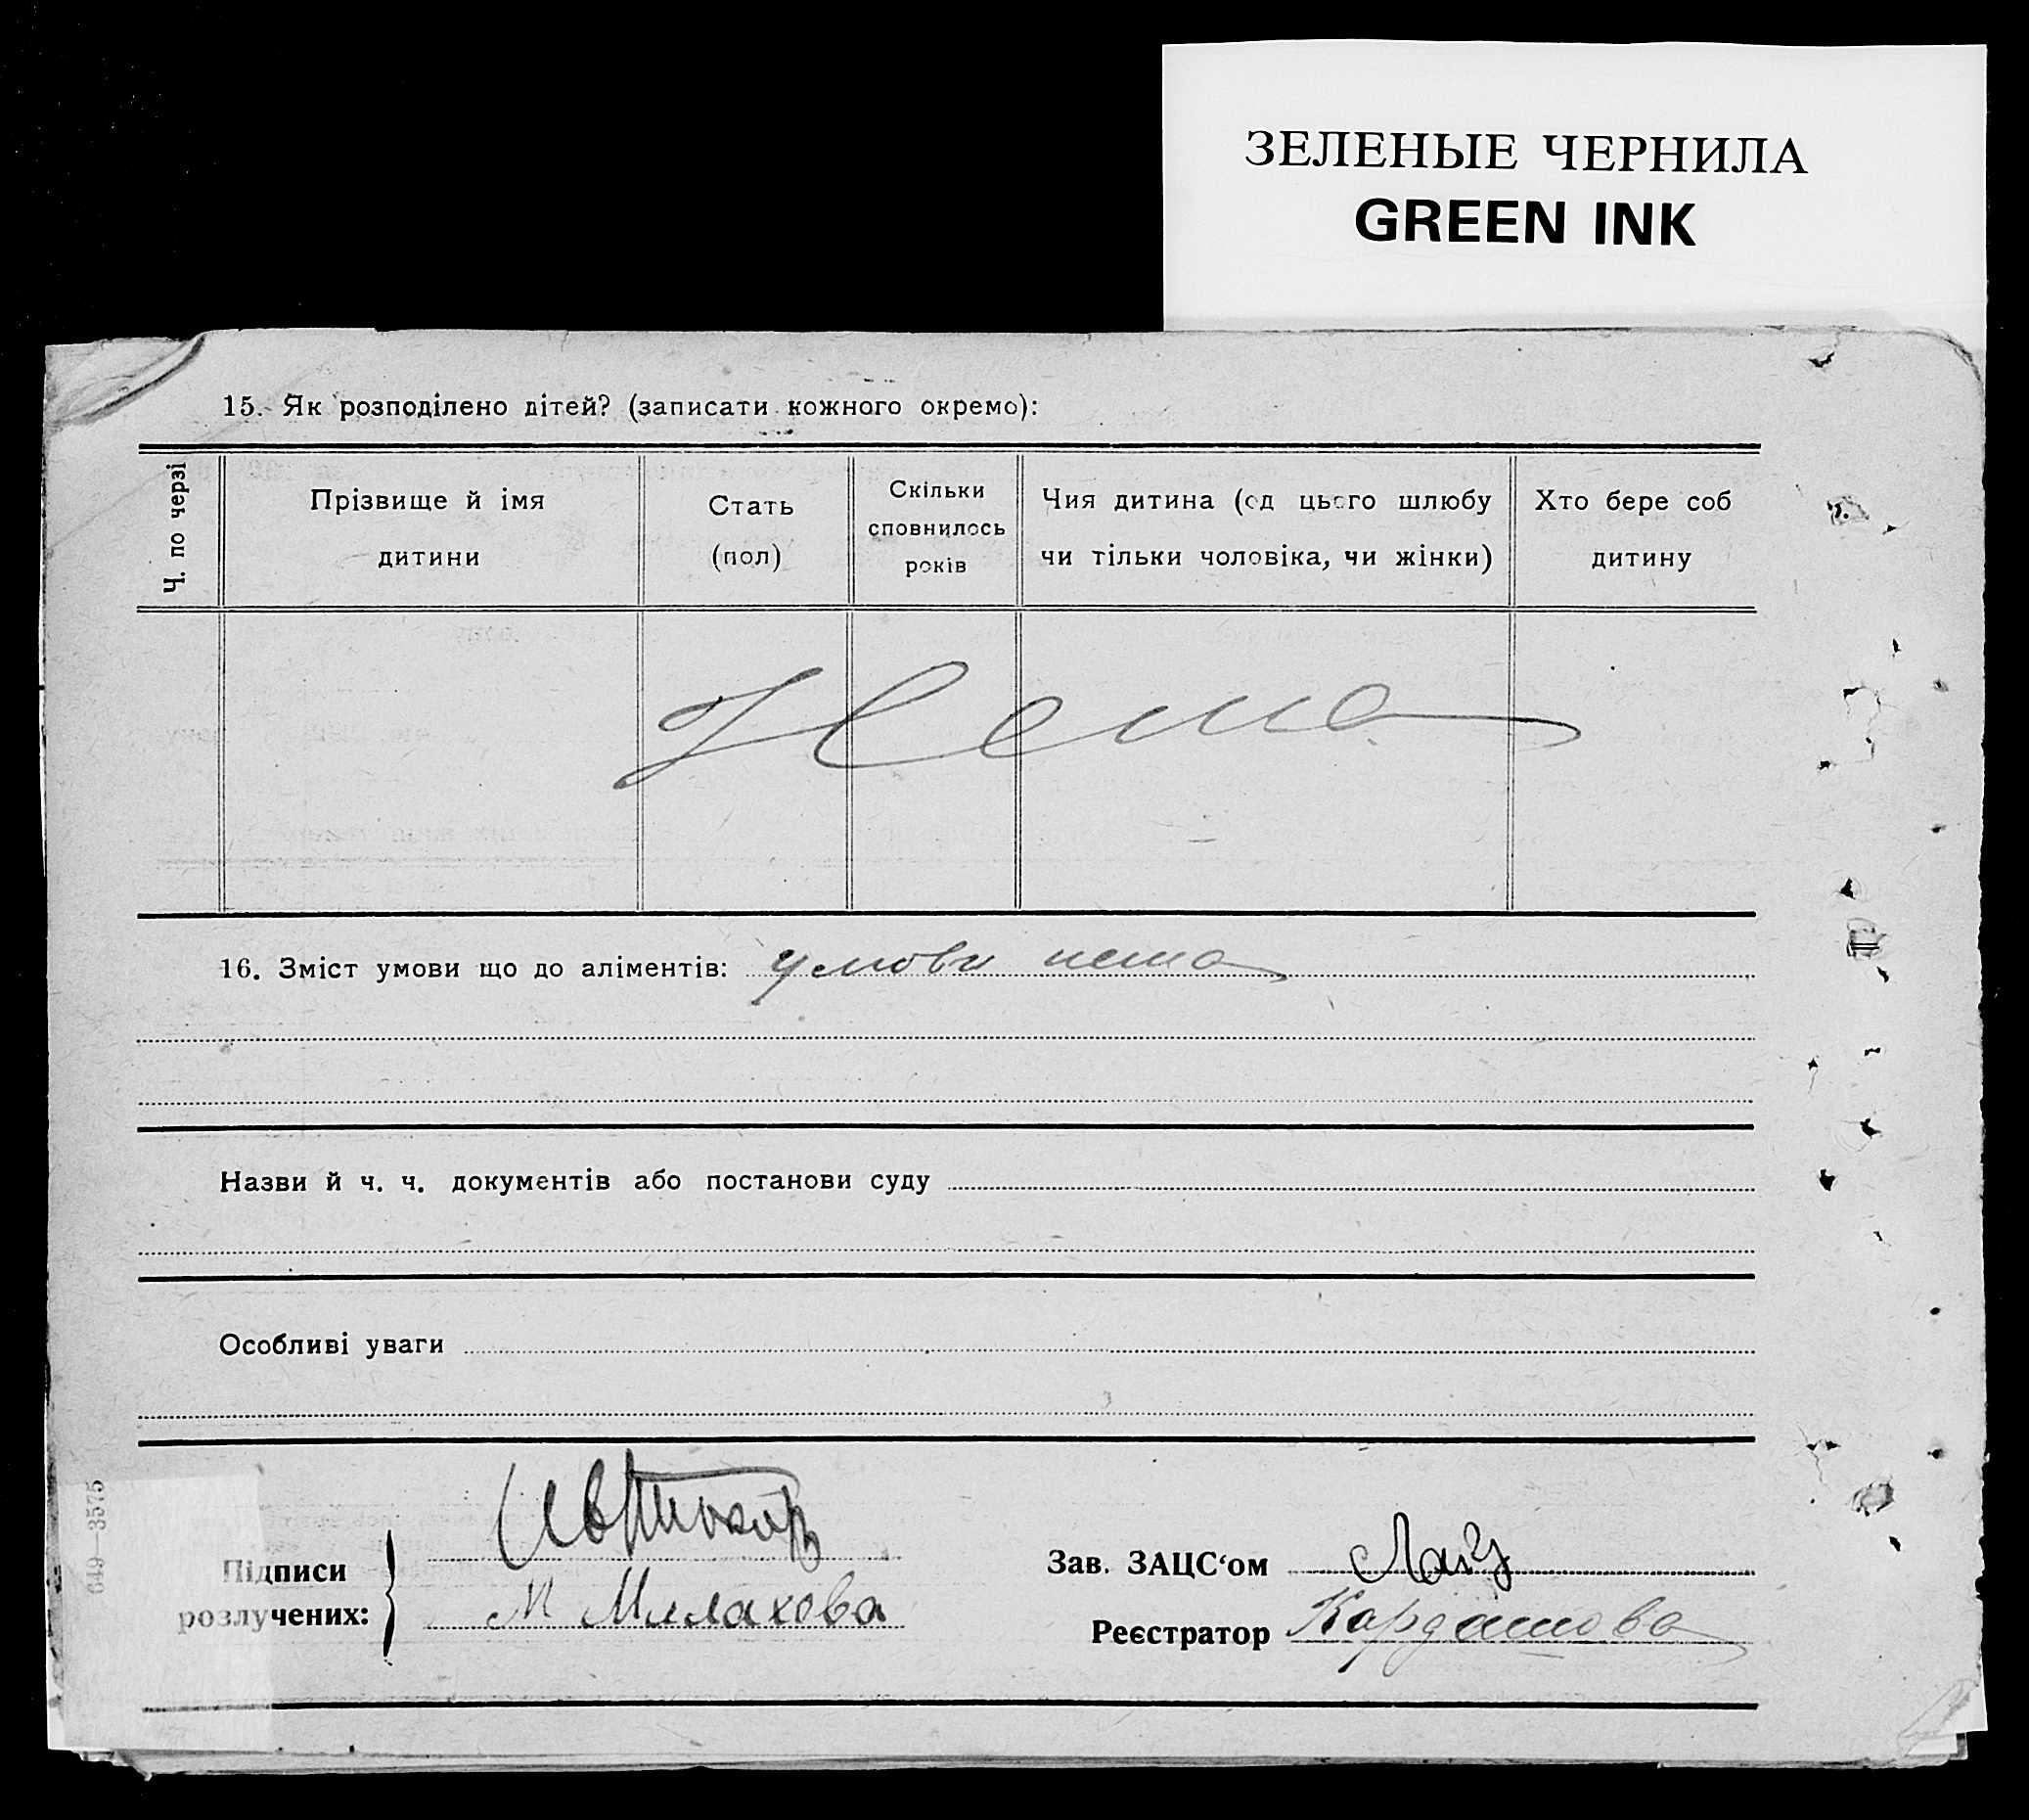 ЗЕЛЕНЫЕ ЧЕРНИЛА
GREEN INK
15. Як розподілено дітей? (записати кожного окремо):
Ч. по черзі
Прізвище й імя
дитини
Стать
(пол)
Скільки
сповнилось
років
Чия дитина (од цього шлюбу
чи тільки чоловіка, чи жінки)
Хто бере соб
дитину
Нема
16. Зміст умови що до аліментів: умови нема
Назви й ч. ч. документів або постанови суду
Особливі уваги
649—3575
Підписи
розлучених:
М Малахова
Зав. ЗАЦС‘ом
Реєстратор Кардашова